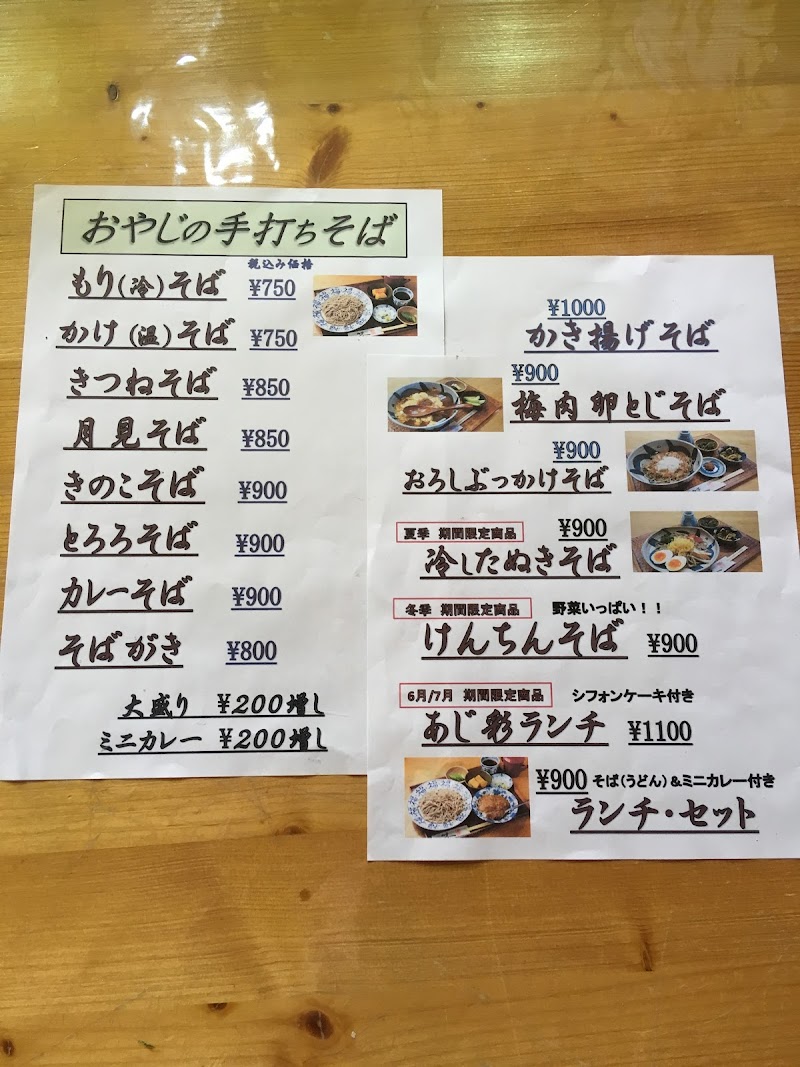 おやじの手打ちそば
税込み価格
もり(冷)そば ¥750
かけ(温)そば ¥750
きつねそば ¥850
月見そば ¥850
きのこそば ¥900
とろろそば ¥900
カレーそば ¥900
そばがき ¥800
大盛り ¥200増し
ミニカレー ¥200増し
¥1000
かき揚げそば
¥900
梅肉卵とじそば
¥900
おろしぶっかけそば
夏季 期間限定商品 ¥900
冷したぬきそば
冬季 期間限定商品 野菜いっぱい!!
けんちんそば ¥900
6月/7月 期間限定商品 シフォンケーキ付き
あじ彩ランチ ¥1100
¥900 そば(うどん)&ミニカレー付き
ランチ・セット